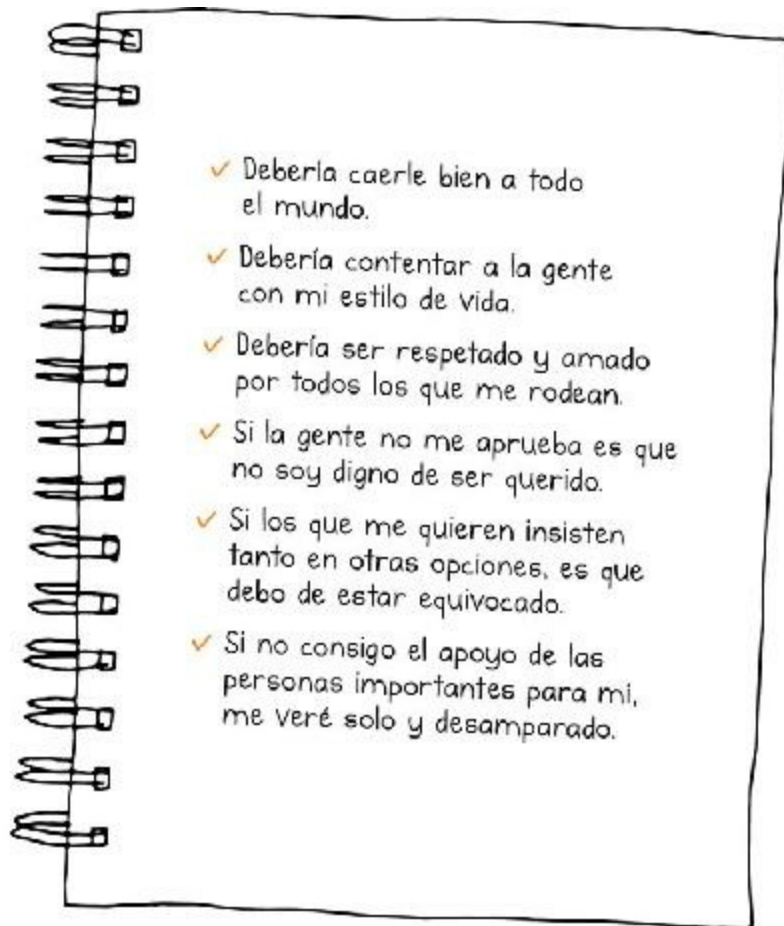 ✓ Debería caerle bien a todo
el mundo.
✓ Debería contentar a la gente
con mi estilo de vida.
✓ Debería ser respetado y amado
por todos los que me rodean.
✓ Si la gente no me aprueba es que
no soy digno de ser querido.
✓ Si los que me quieren insisten
tanto en otras opciones, es que
debo de estar equivocado.
✓ Si no consigo el apoyo de las
personas importantes para mi,
me veré solo y desamparado.